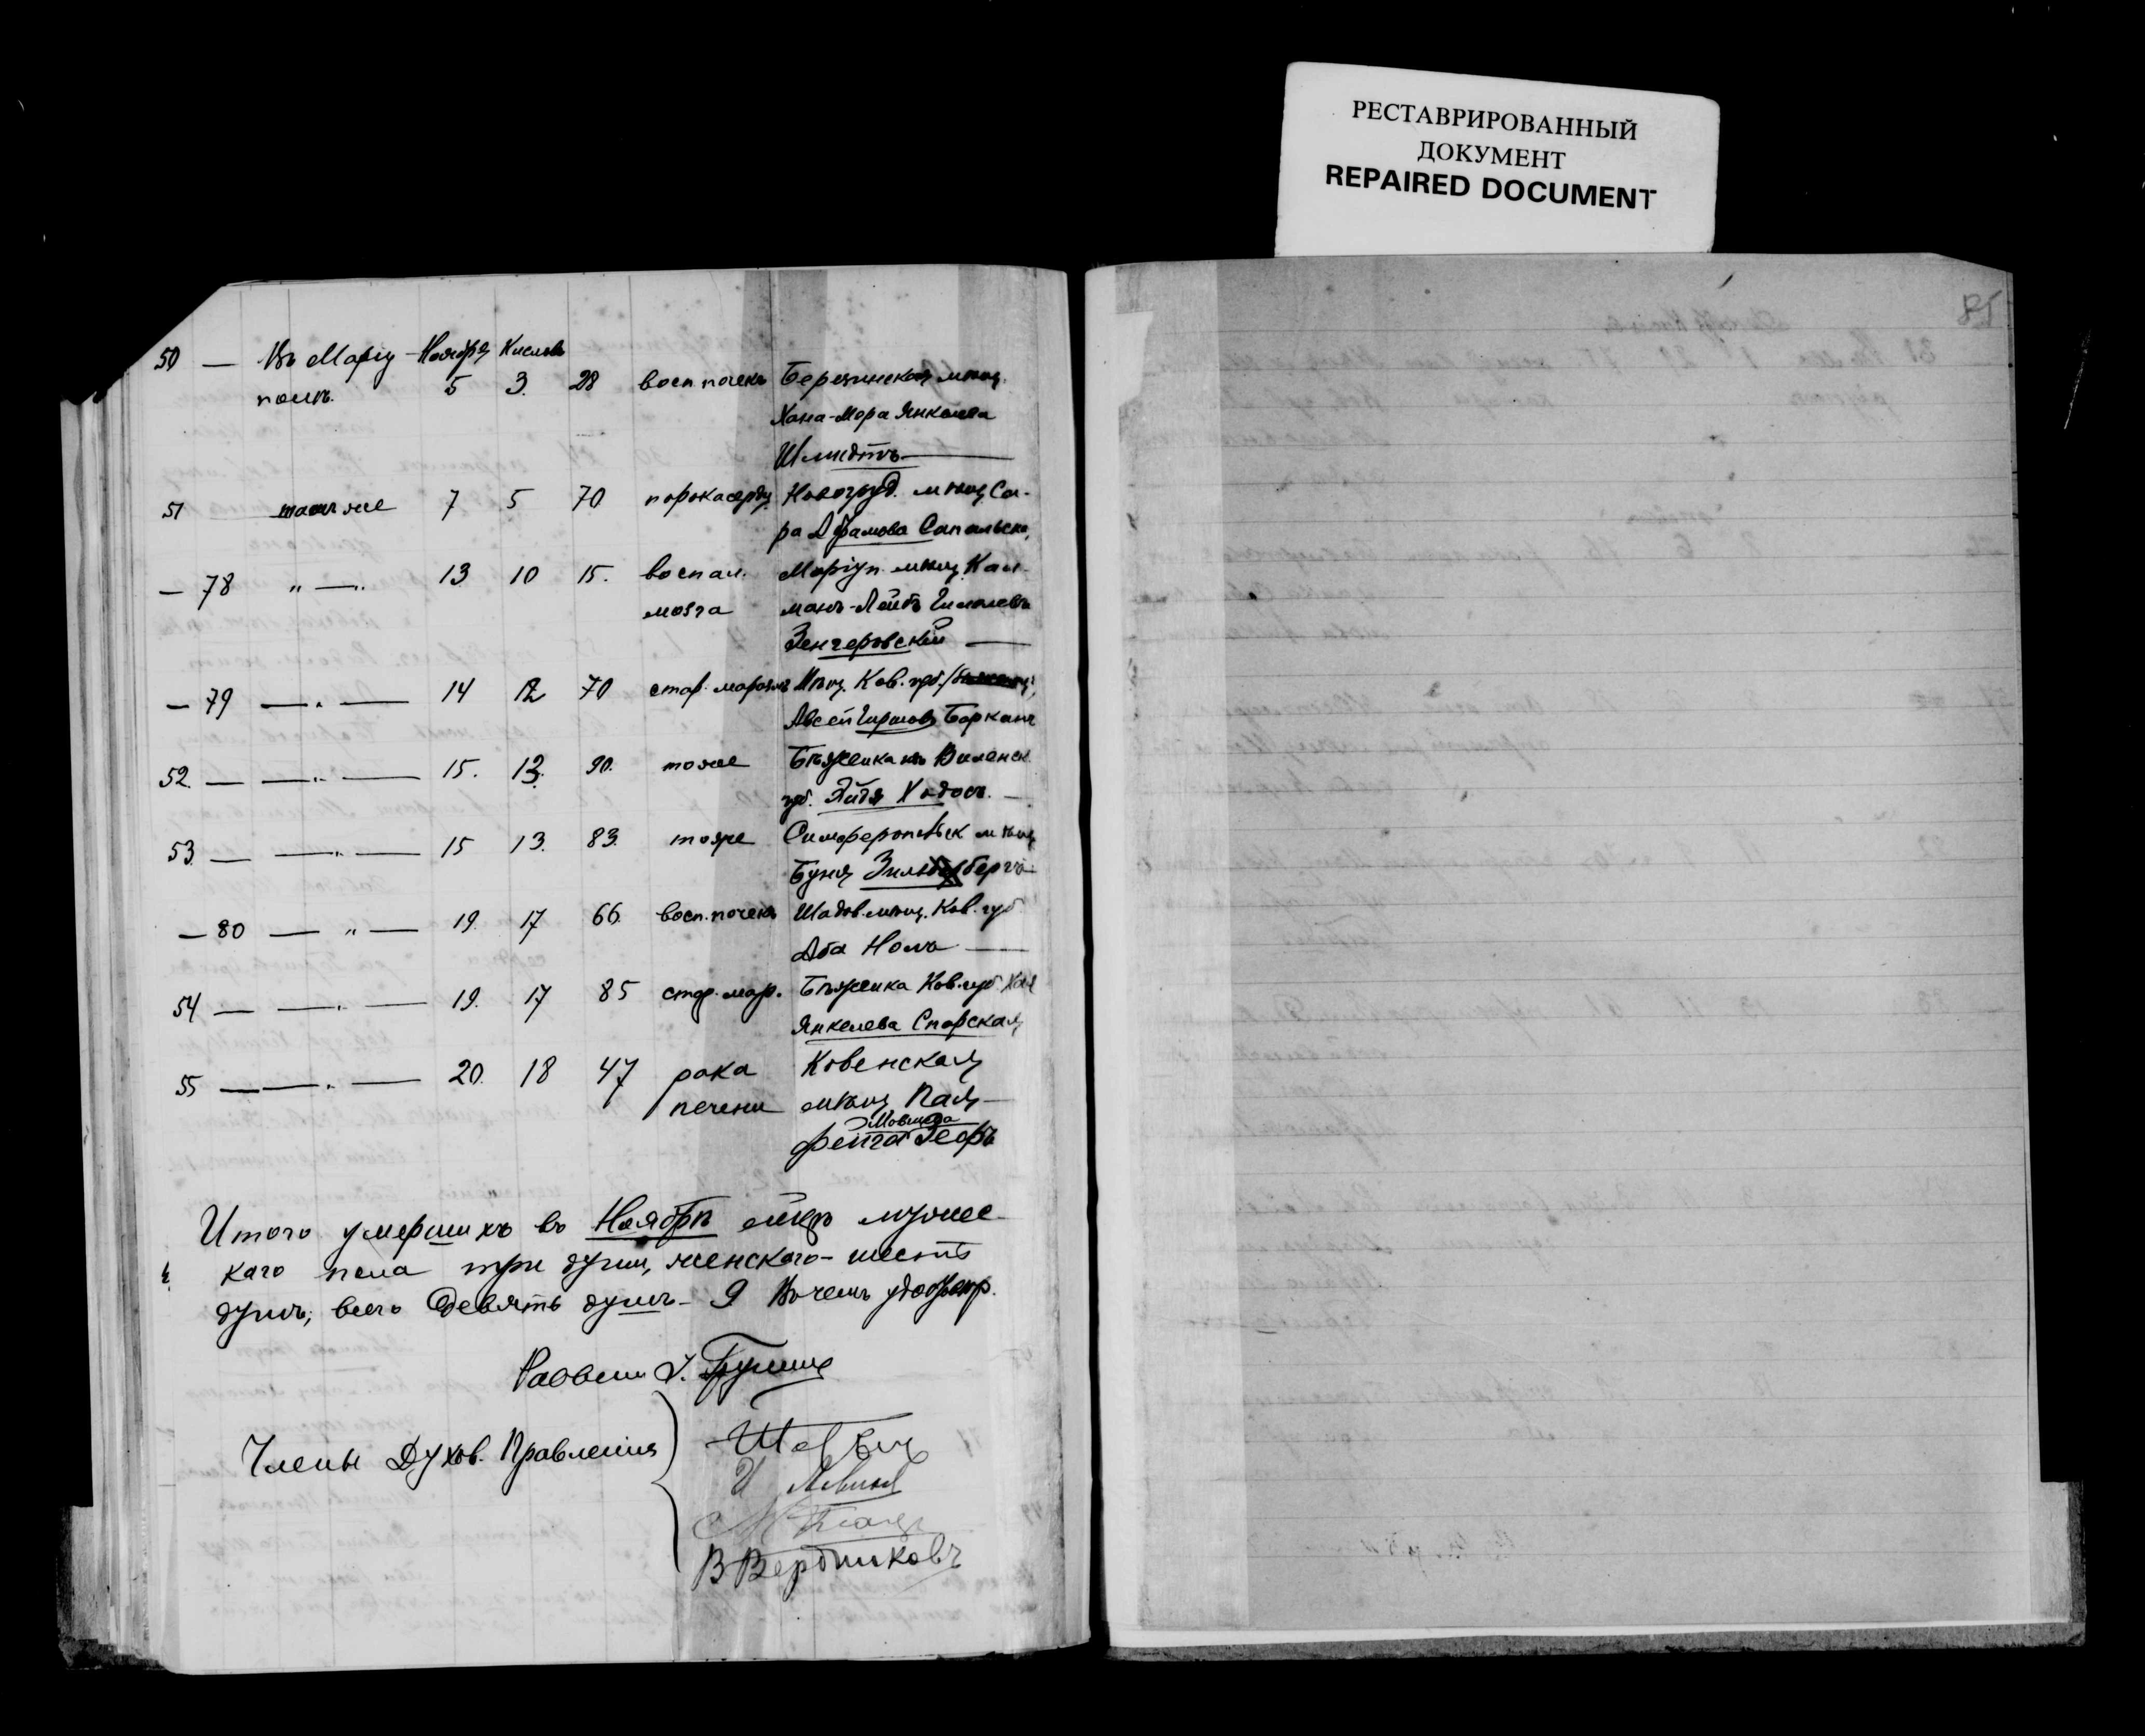 РЕСТАВРИРОВАННЫЙ
ДОКУМЕНТ
REPAIRED DOCUMENT
85
50 — Въ Маріу- Ноября Кислевъ
полѣ. 5 3. 28 восп. почекъ Березинская мѣщ.
Хана-Мера Янкелева
Шмидтъ —
51 тамъ же 7 5 70 порока сердц. Новогруд. мѣщ. Са-
ра Абрамова Сапольск.
— 78 " —" 13 10 15. воспал. Маріуп. мѣщ. Кал-
мозга манъ-Лейбъ
Зенгеровскій —
— 79 — " — 14 12 70 стар. маразмъ Мѣщ. Ков. губ.
Авсей Гиршовъ Барканъ
52. — — " — 15. 13. 90. тоже Бѣженка изъ Виленск.
губ. Эйдя Ходосъ. —
53. — — " — 15 13. 83. тоже Симферопольск мѣщ
Буня Зильбербергъ
— 80 — " — 19. 17 66. восп. почекъ Шадов. мѣщ. Ков. губ
Аба Нолъ —
54 — — " — 19. 17 85 стар. мар. Бѣженка Ков. губ. Хая
Янкелева Спорская
55 — — " — 20. 18 47 рака Ковенская
печени мѣщ.
Мовшова
Фейга
Итого умершихъ въ Ноябрѣ мцѣ мужес-
каго пола три души, женскаго - шесть
душъ, всего девять душъ - 9 Въ чемъ удостовѣр.
Раввинъ
Члены Духов. Правленія
И Левинъ
В Вербниковъ